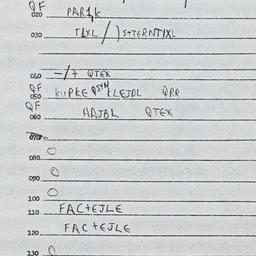 QF
020 PARIK
030 TIXL / ) S+TERNTIXL
010 -/+ QTEX
QF
050 KUPKE QSYN KLEJDL QRR
QF
060 HAJBL QTEX
070
080 O
090 O
100 O
110 FAC+EJLE
120 FAC+EJLE
130